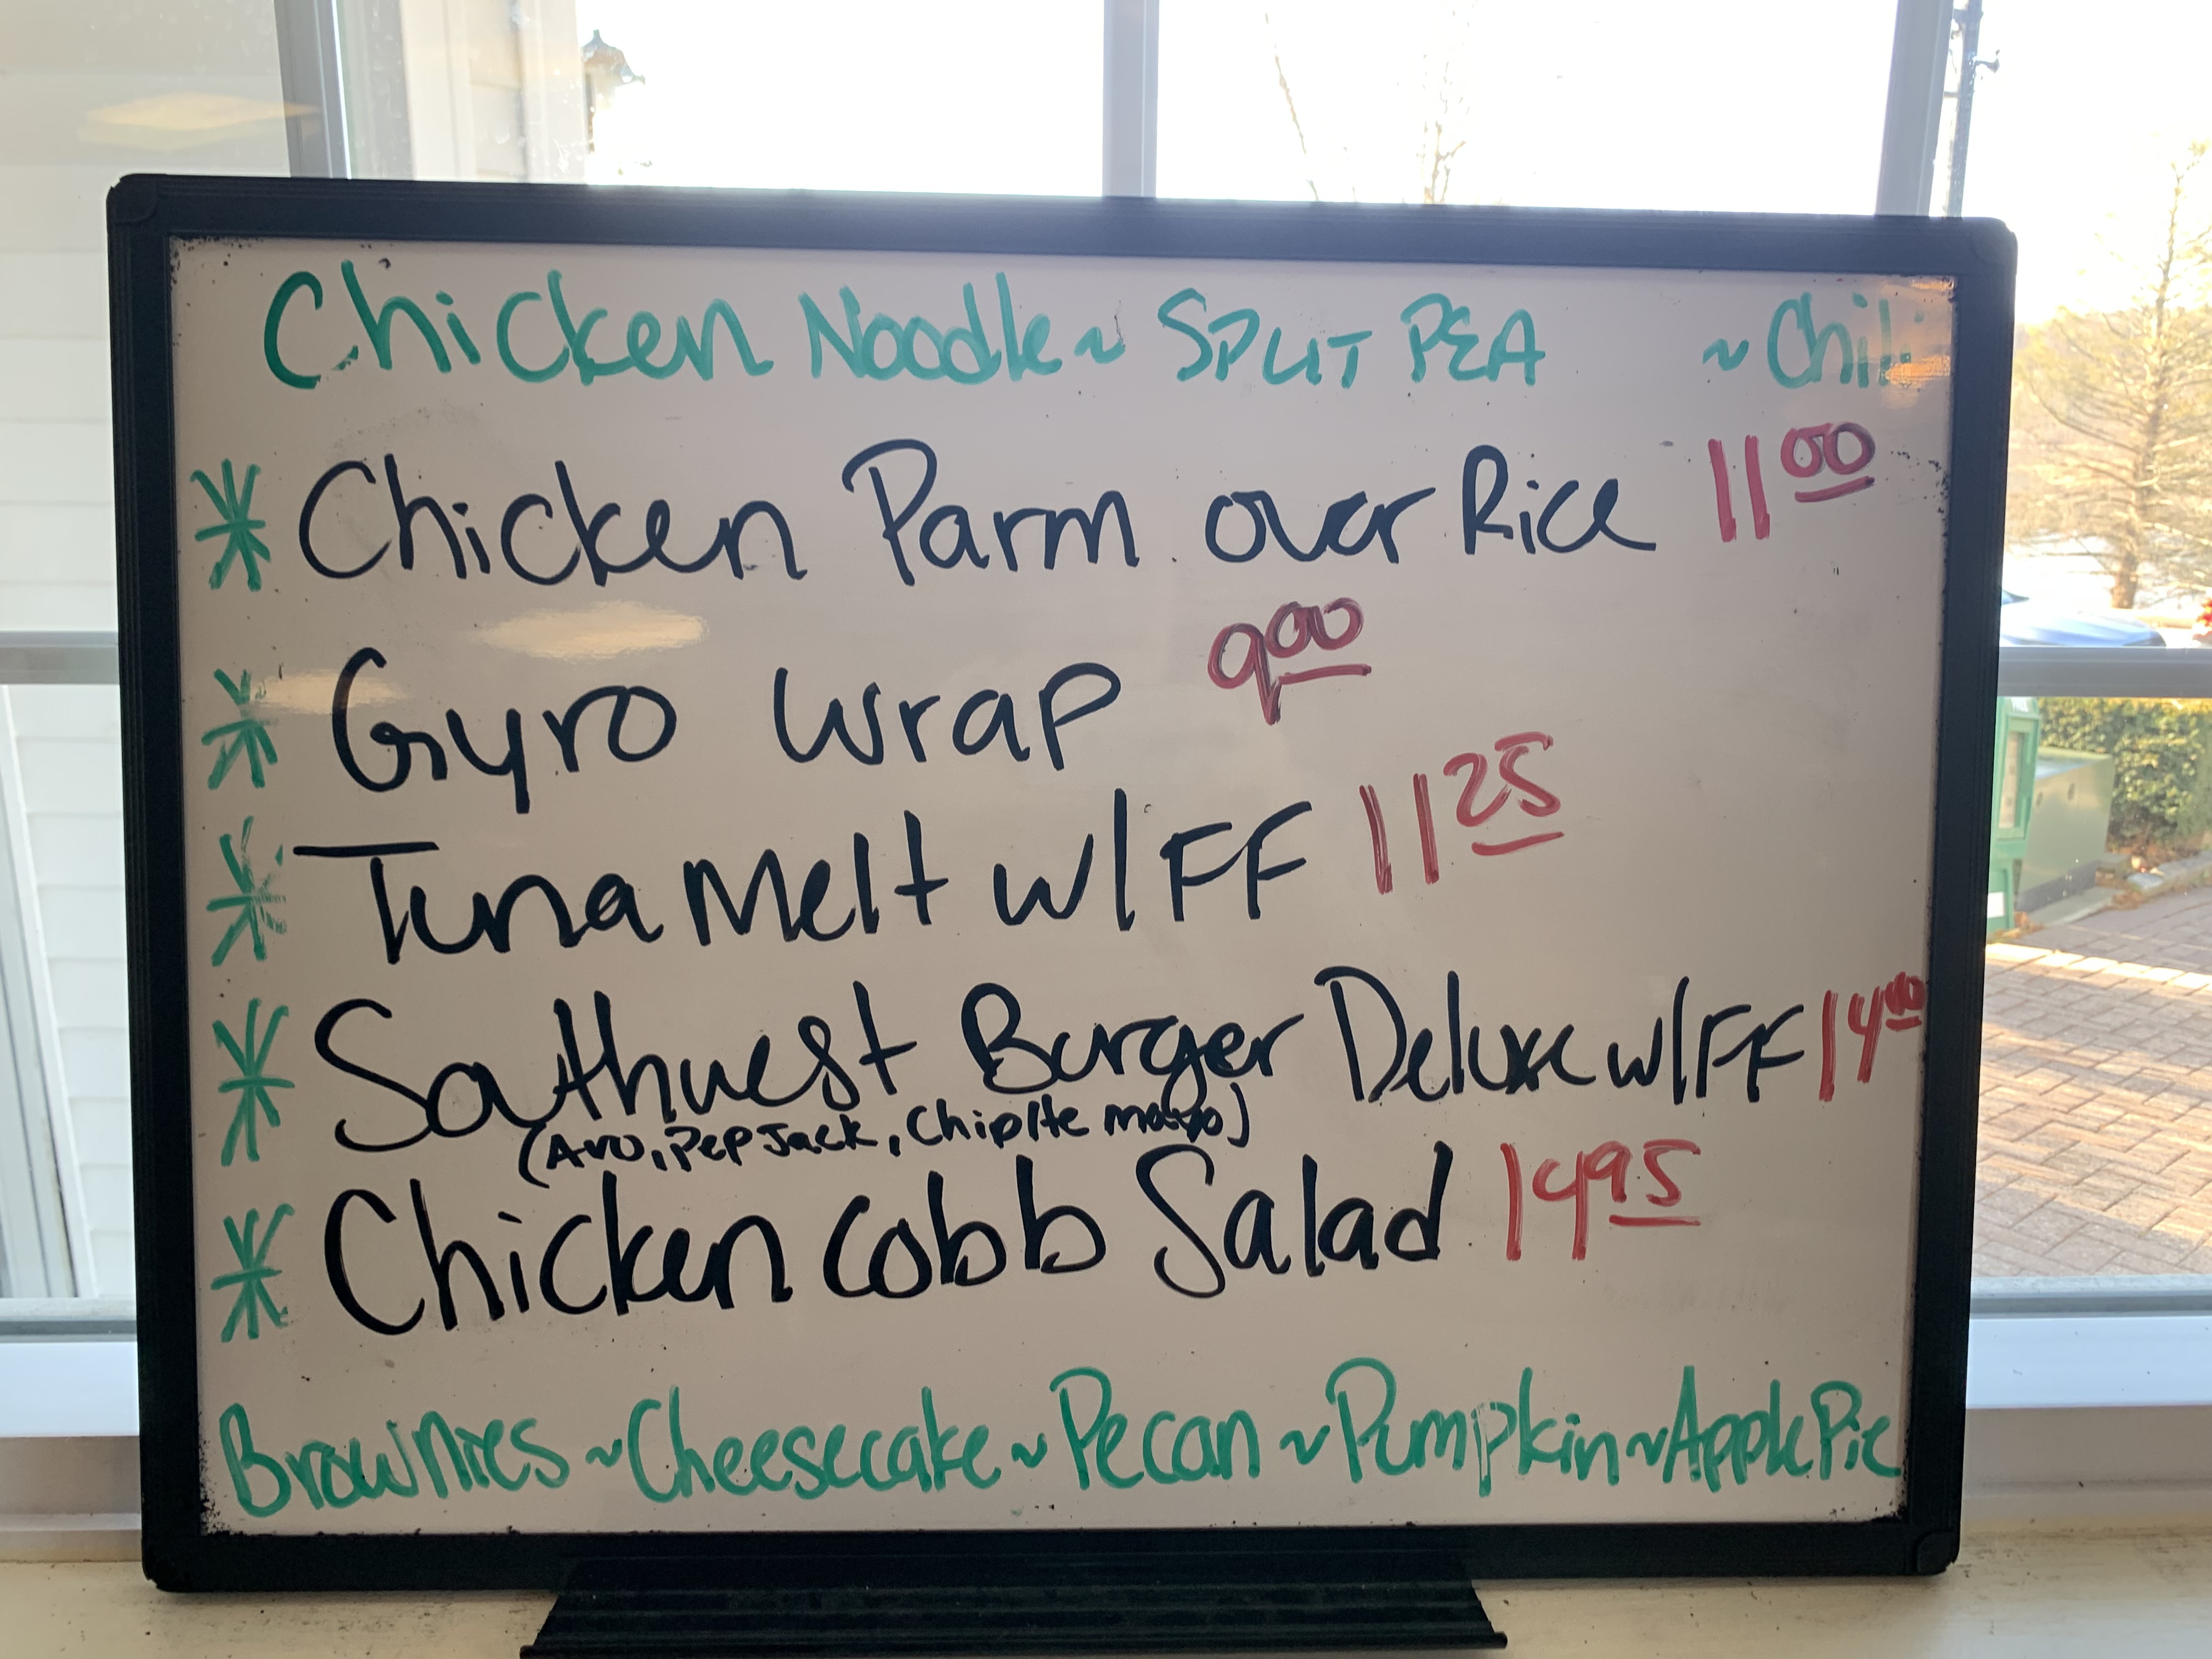 Chicken Noodle ~ SPLIT PEA ~ Chili
* Chicken Parm over Rice 11.00
* Gyro Wrap 9.00
* Tuna Melt w/FF 11.25
* Southwest Burger Deluxe w/FF 14.00
(Avo, Pep Jack, Chiplte mayo)
* Chicken Cobb Salad 14.95
Brownies ~ Cheesecake ~ Pecan ~ Pumpkin ~ Apple Pie